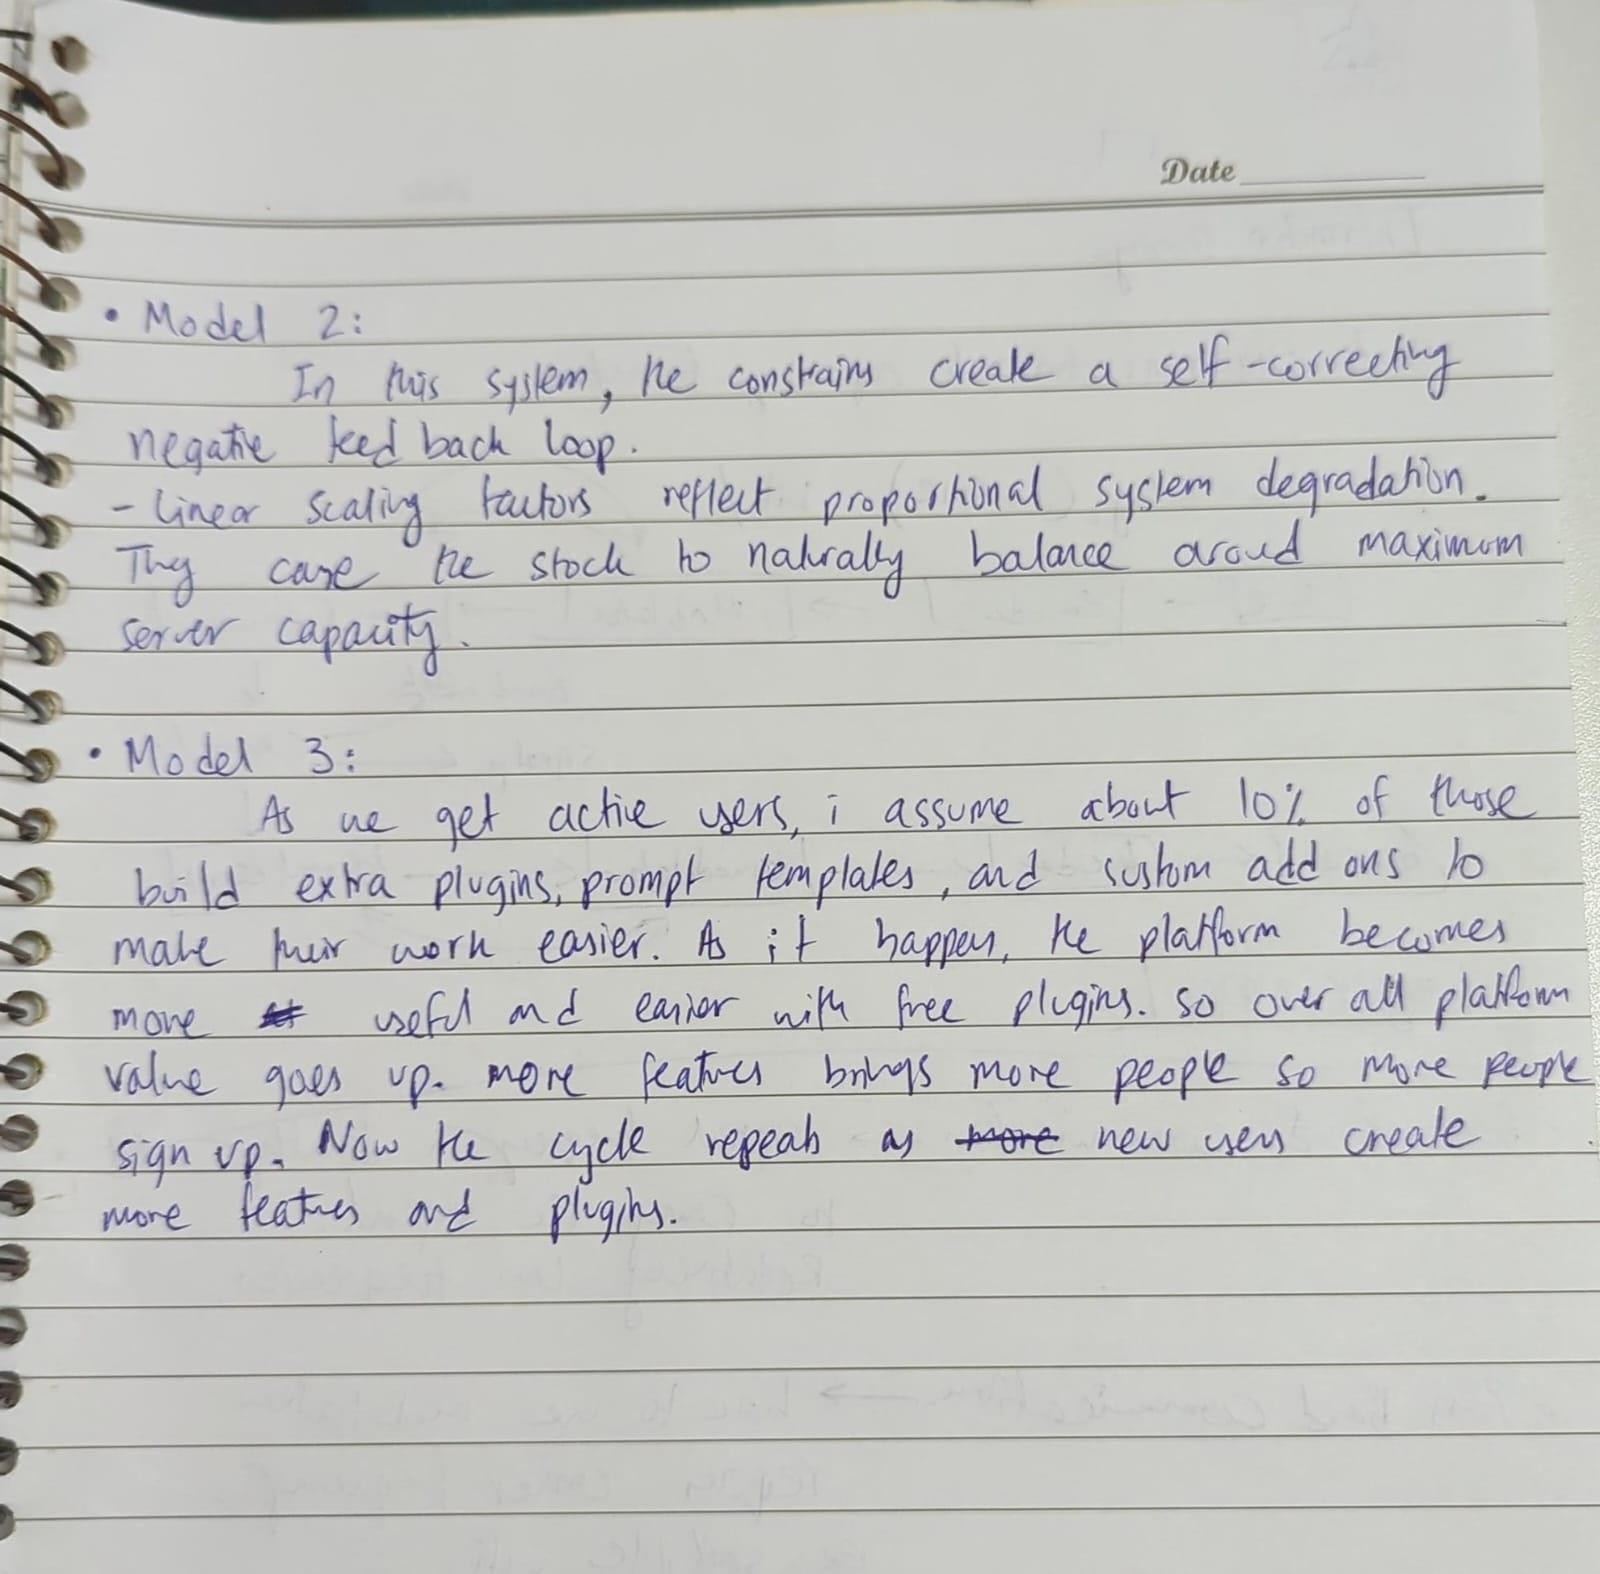 Date
• Model 2:
In this system, the constrains create a self-correcting
negative feed back loop.
- Linear scaling factors reflect proportional system degradation.
They cause the stock to naturally balance aroud maximum
server capacity.
• Model 3:
As we get active users, i assume about 10% of those
build extra plugins, prompt templates, and custom add ons to
make their work easier. As it happens, the platform becomes
more useful and easier with free plugins. so over all platform
value goes up. more features brings more people so more people
sign up. Now the cycle repeats as more new users create
more features and plugins.